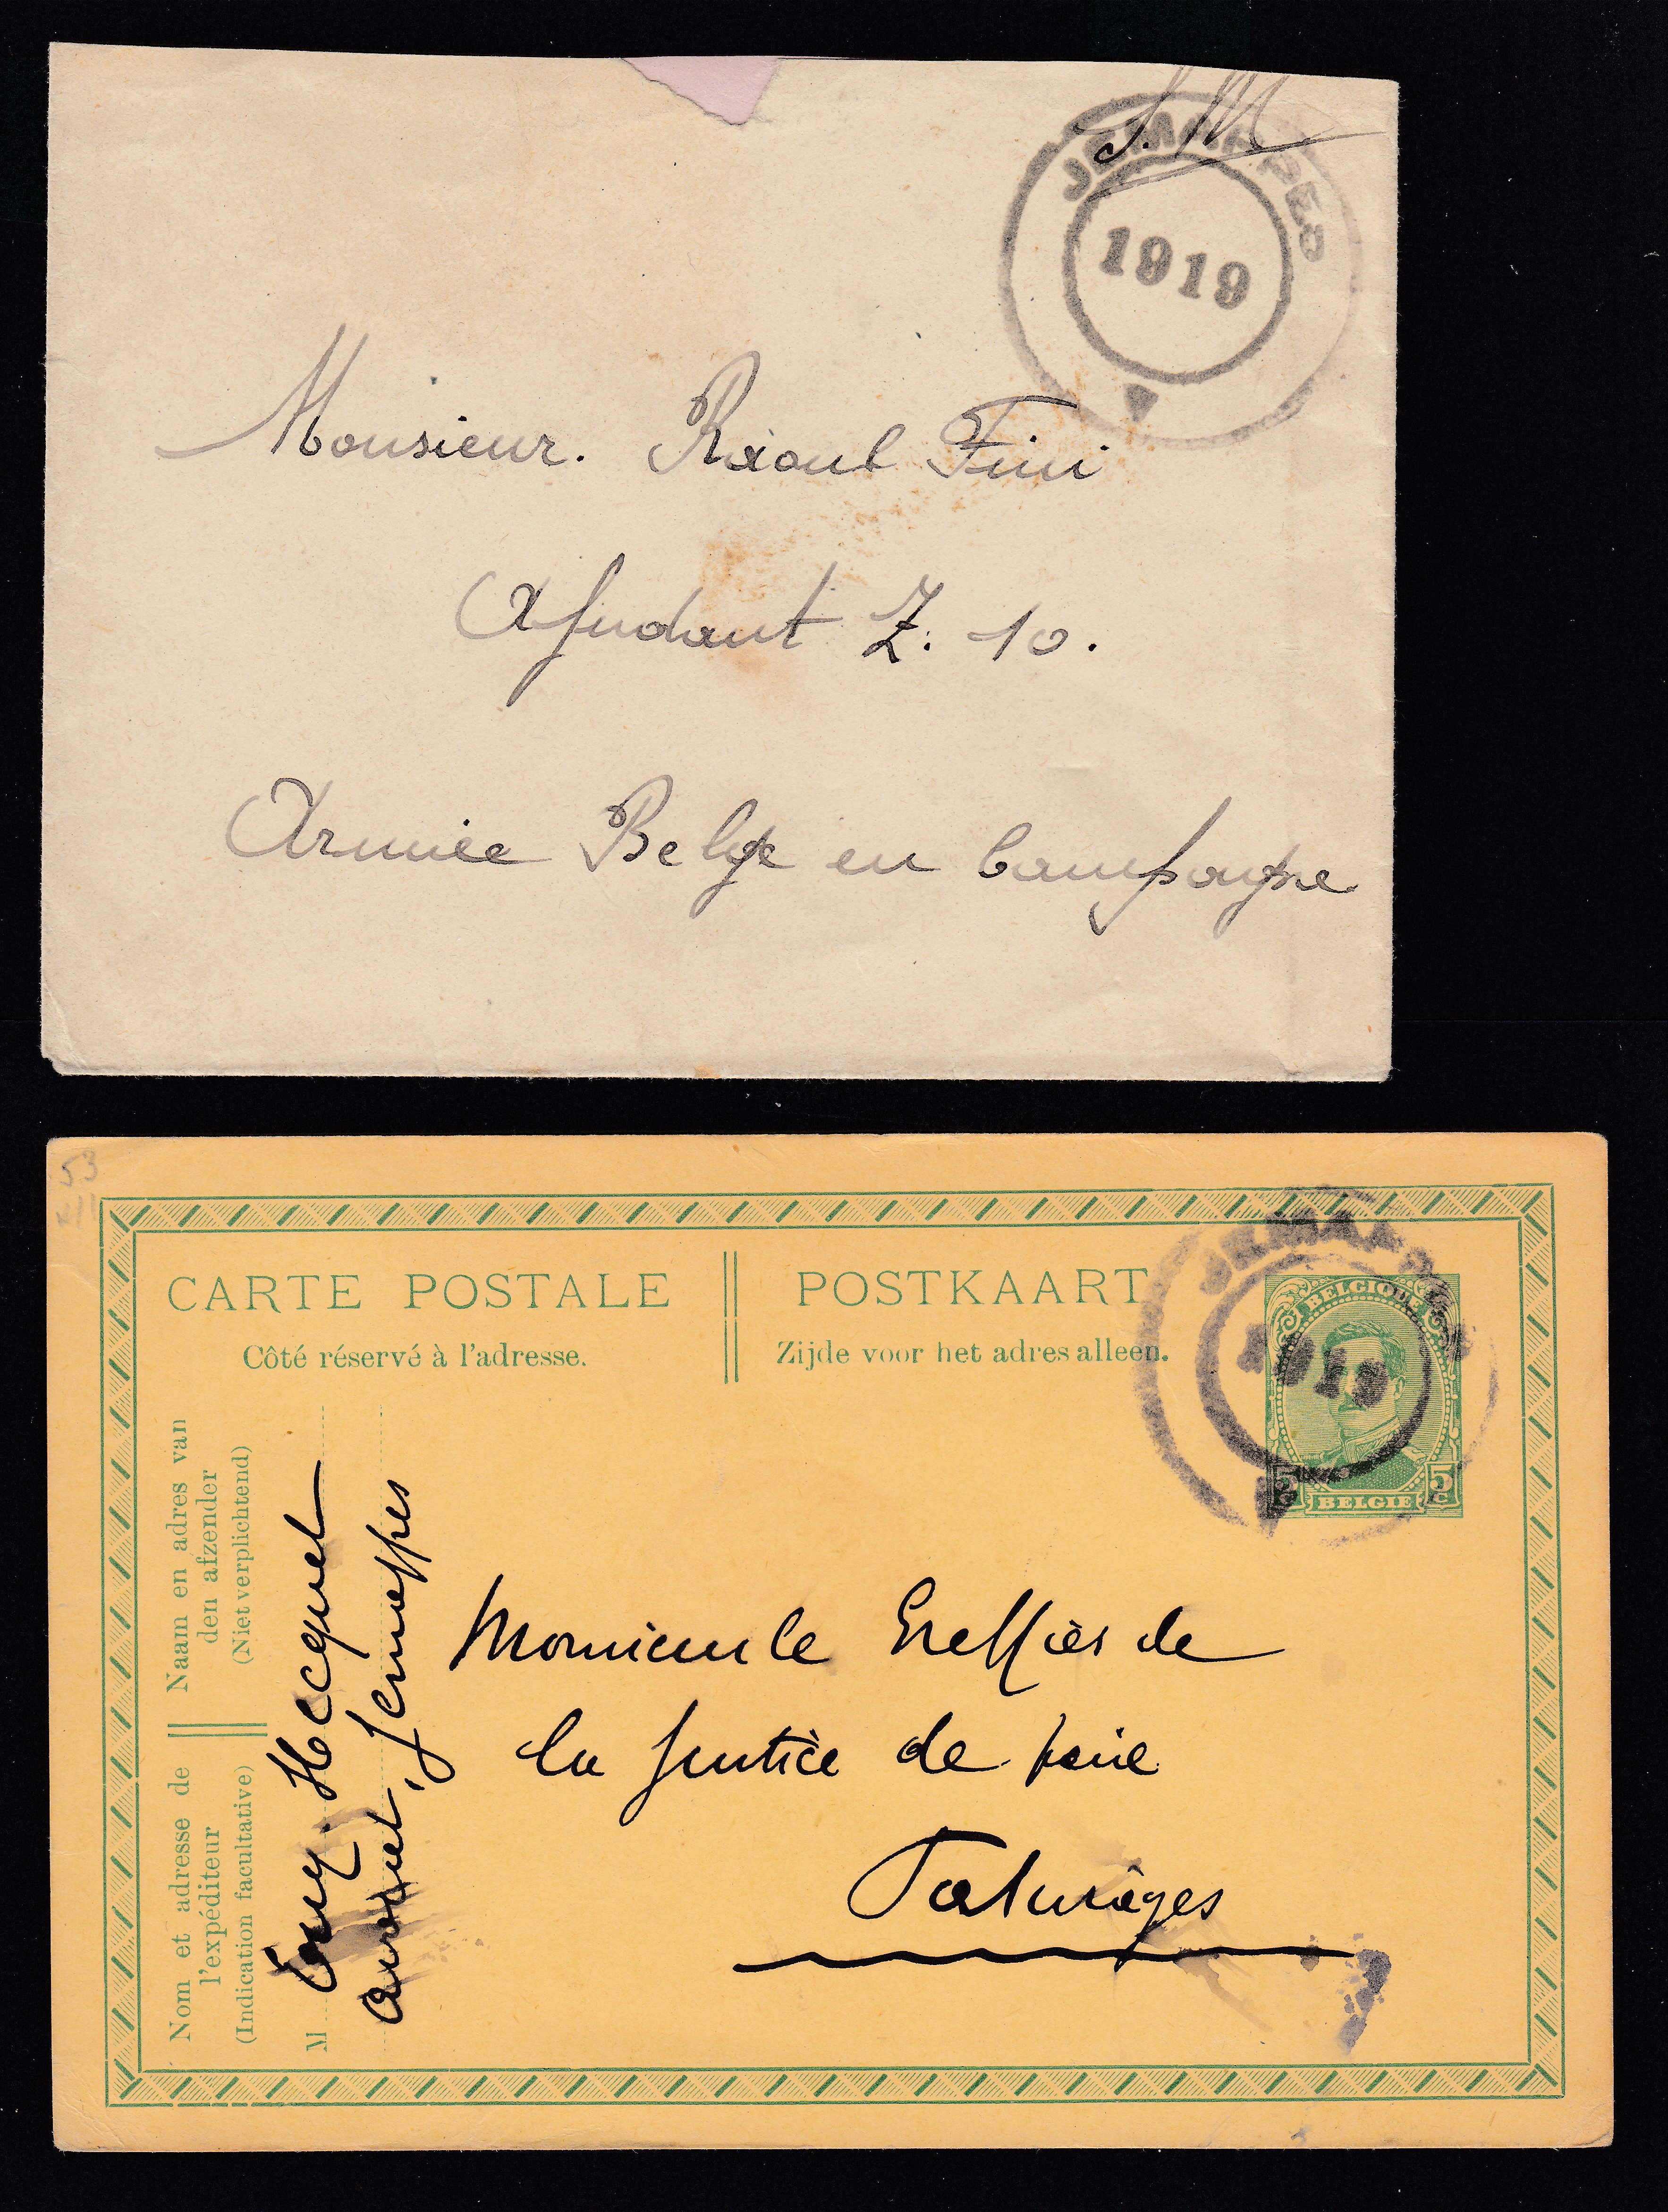 S.M
JEMAPPES
1919
Monsieur. Raoul Fini
Adjudant Z. 10.
Armée Belge en Campagne
53
CARTE POSTALE
Côté réservé à l'adresse.
POSTKAART
Zijde voor het adres alleen.
JEMAPPES
1919
BELGIQUE
5 C
BELGIË
5 C
Naam en adres van
den afzender
(Niet verplichtend)
Nom et adresse de
l'expéditeur
(Indication facultative)
M
Hecquet
avouet, Jemappes
Monsieur le Greffier de
la Justice de paix
Paturâges